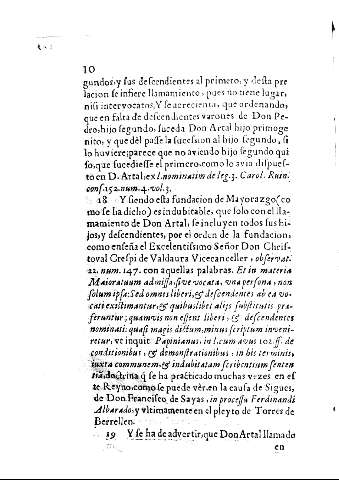 10
gundos, y sus descendientes al primero, y desta pre
lacion se infiere llamamiento, pues no tiene lugar,
nisi inter vocatos. Y se acrecienta, que ordenando,
que en falta de descendientes varones de Don Pe-
dro, hijo segundo, suceda Don Artal hijo primoge
nito, y que del passe la sucesion al hijo segundo, si
lo huviere; parece que no aviendo hijo segundo qui
so, que sucediesse el primero, como lo avia dispues-
to en D. Artal, ex l. nominatim de leg. 3. Carol. Ruin.
cons. 152. num. 4. vol. 3.
18 Y siendo esta fundacion de Mayorazgo (co
mo se ha dicho) es indubitable, que solo con el lla-
mamiento de Don Artal, se incluyen todos sus hi-
jos, y descendientes, por el orden de la fundacion,
como enseña el Excelentissimo Señor Don Chris-
toval Crespi de Valdaura Vicecanceller, observat.
22. num. 147. con aquellas palabras. Et in materia
Maioratuum admissa, sive vocata, vna persona, non
solum ipsa: Sed omnes liberi, & descendentes ab ea vo-
cati existimantur, & quibuslibet alijs substitutis præ-
feruntur; quamvis non essent liberi, & descendentes
nominati: quasi magis dictum, minus scriptum inveni-
retur, vt inquit Papinianus, in l. cum avus 102. ff. de
conditionibus, & demonstrationibus, in his terminis,
iuxta communem, & indubitatam scribentium senten
tiã, doctrina q̃ se ha practicado muchas vezes en es
te Reyno, como se puede vèr en la causa de Sigues,
de Don Francisco de Sayas, in processu Ferdinandi
Albarado; y vltimamente en el pleyto de Torres de
Berrellen.
19 Y se ha de advertir, que Don Artal llamado
en